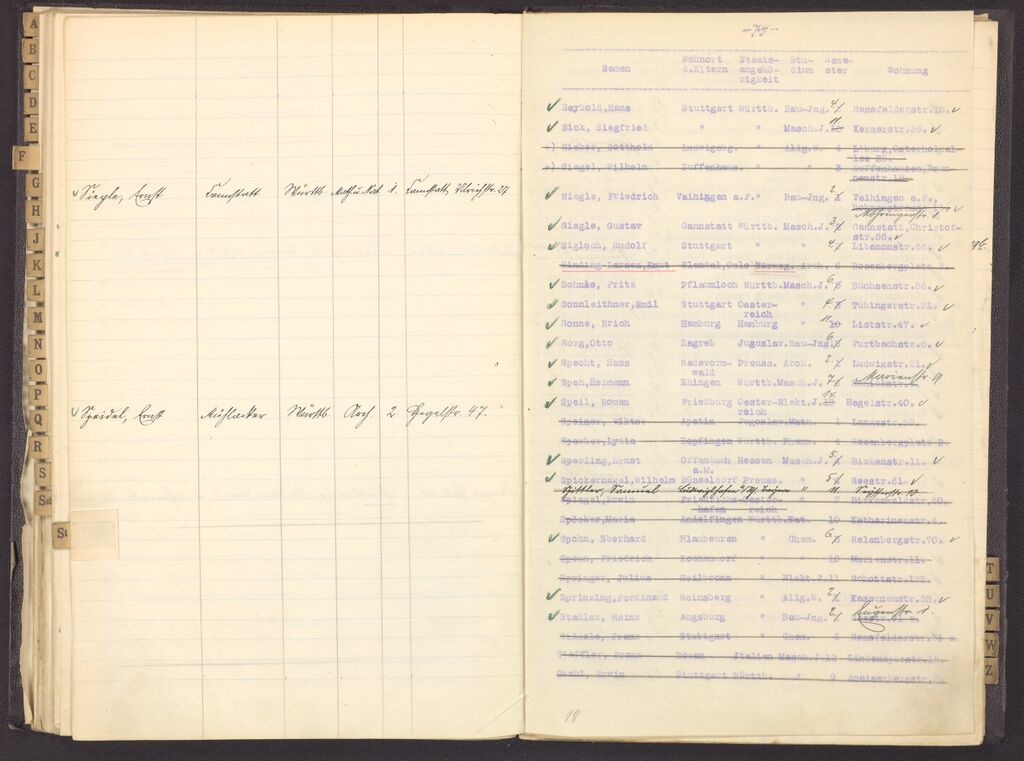 A
B
C
D
E
F
G
H
J
K
L
M
N
O
P
Q
R
S
Sch
St
Siegle, Ernst Cannstatt Württb. Math.u.Nat. 1. Cannstatt, Ulrichstr. 27
Speidel, Ernst Mühlacker Württb. Arch. 2. Hegelstr. 47.
-74-
Namen Wohnort d.Eltern Staats-angehö-rigkeit Stu-dium Seme-ster Wohnung
Seybold,Hans Stuttgart Württb. Bau-Jng. 4 Senefelderstr.18.
Sick, Siegfried " " Masch.J. 11 Kernerstr.36.
+) Sieber, Gotthold Ludwigsbg. " Allg.W. 4 Lburg,Osterholzal-
lee 25.
+) Siegel, Wilhelm Zuffenhaus. " " 3 Zuffenhausen,
Siegle, Friedrich Vaihingen a.F. " Bau-Jng. 2 Vaihingen a.F.,
Möhringerstr. 1.
Siegle, Gustav Cannstatt Württb. Masch.J. 3 Cannstatt,Christof-
str.66.
Sigloch, Rudolf Stuttgart " " 4. Libanonstr.66.
Sinding-Larsen,Knut Slendal,Oslo Norweg. Arch. 6 Rosenbergplatz
Sohnle, Fritz Pflaumloch Württb.Masch.J. 6 Büchsenstr.56.
Sonnleithner,Emil Stuttgart Oester-
reich " 4. Tübingerstr.21.
Sonne, Erich Hamburg Hamburg " 11 10 Liststr.47.
Sorg,Otto Zagreb Jugoslav.Bau-Jng. 6 Furtbachstr.6.
Specht, Hans Radevorm-
wald Preuss. Arch. 2. Ludwigstr.21.
Speh,Hermann Ehingen Württb.Masch.J. 7 Marienstr. 9.
Speil, Roman Friedburg Oester-
reich Elekt.J. 14. Hegelstr.40.
Speiser, Viktor Apatin Jugoslav.Math. 1 Langestr.
Sperber,Lydia Bopfingen Württb. Pharm. 4 Rosenbergplatz 2.
Sperling,Ernst Offenbach
a.M. Hessen Masch.J. 5 Birkenstr.11.
Spickernagel,Wilhelm Düsseldorf Preuss. " 5 Seestr.61.
Spittler, Samuel Ludwigshafen " 11.
Spiegel,Erwin Friedrichs-
hafen Oester-
reich " Birkenwaldstr.40.
Spöcker,Maria Andelfingen Württb.Nat. 10 Katharinenstr.4.
Spohn, Eberhard Blaubeuren " Chem. 6 Relenbergstr.70.
Friedrich Kochendorf " " 10 Marienstr.11.
Springer, Julius Heilbronn " Elekt.J.11 Schottstr.
Sprinzing,Ferdinand Heinsberg " Allg.W. 2 Kasernenstr.62.
Stadler, Heinz Augsburg " Bau-Jng. 2 Eugenstr. 1.
Franz Stuttgart " Chem. 6 Senefelderstr.74
Staffler, Franz Bozen Italien Masch.J.12 Lindenspürstr.
Stahl, Erwin Stuttgart Württb. " 9 Ameisenbergstr.
18
T
U
V
W
Z